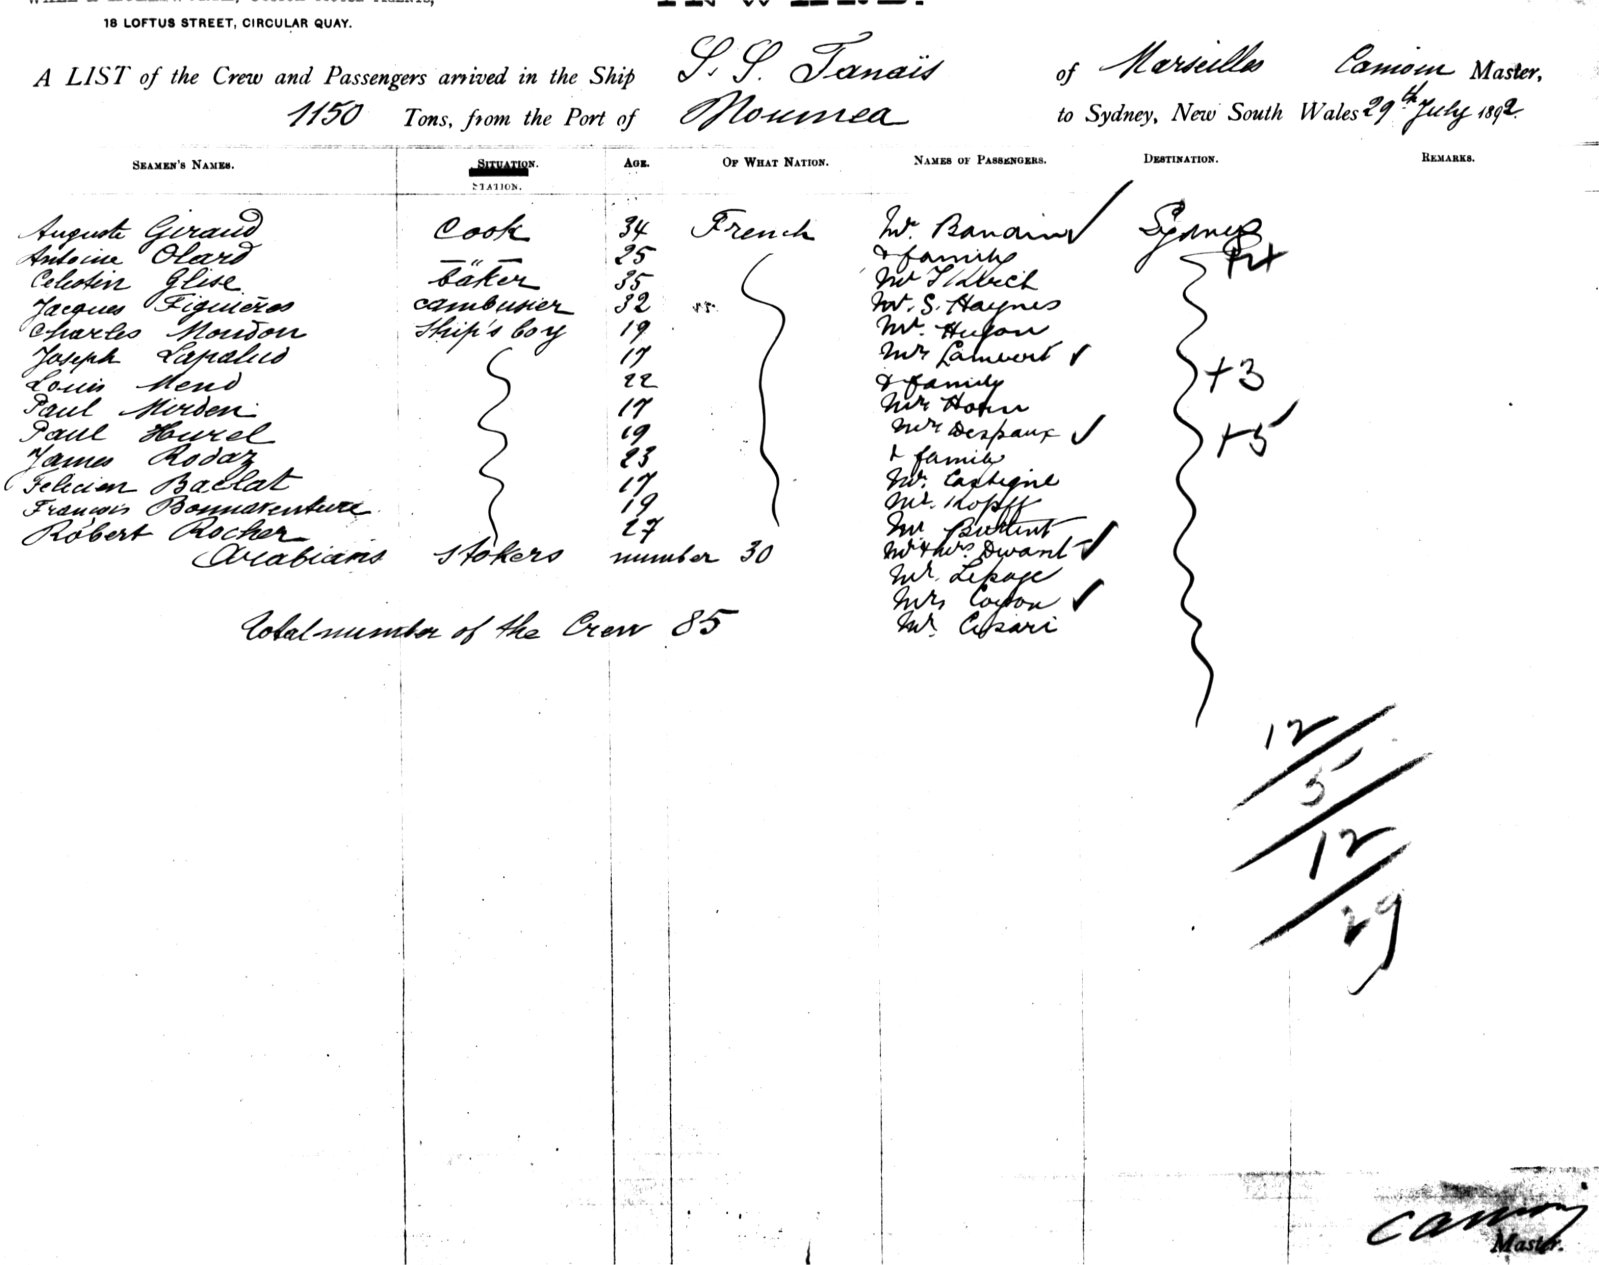 18 LOFTUS STREET, CIRCULAR QUAY.
INWARD.
A LIST of the Crew and Passengers arrived in the Ship S. S. Tanaïs of Marseilles Camoin Master,
1150 Tons, from the Port of Noumea to Sydney, New South Wales 29th July 1892.
SEAMEN'S NAMES. SITUATION. AGE. OF WHAT NATION. NAMES OF PASSENGERS. DESTINATION. REMARKS.
STATION.
Auguste Giraud Cook 34 French Mr. Sydney
Antoine Olard — " — 25 & family
Celestin Glise baker 35 Mr
Jacques Figuieros cambusier 32 Mr. S. Haynes
Charles Moudon ship's boy 19 Mr. Hugon
Joseph Lapalud 17 Mrs Lambert
Louis Mend 22 & family +3
Paul Mirden 17 Mr Horn
Paul Hurel 19 Mrs Despaux +5
James Rodaz 23 & family
Felicien Baclat 17 Mr. Castagne
François Bonnaventure 19 Mr. Kopff
Robert Rocher 27 Mr
Arabians Stokers number 30 Mr & Mrs. Durant
Mr. Lepage
Total number of the Crew 85 Mrs
Mr.
12
5
12
29
Camoin
Master.